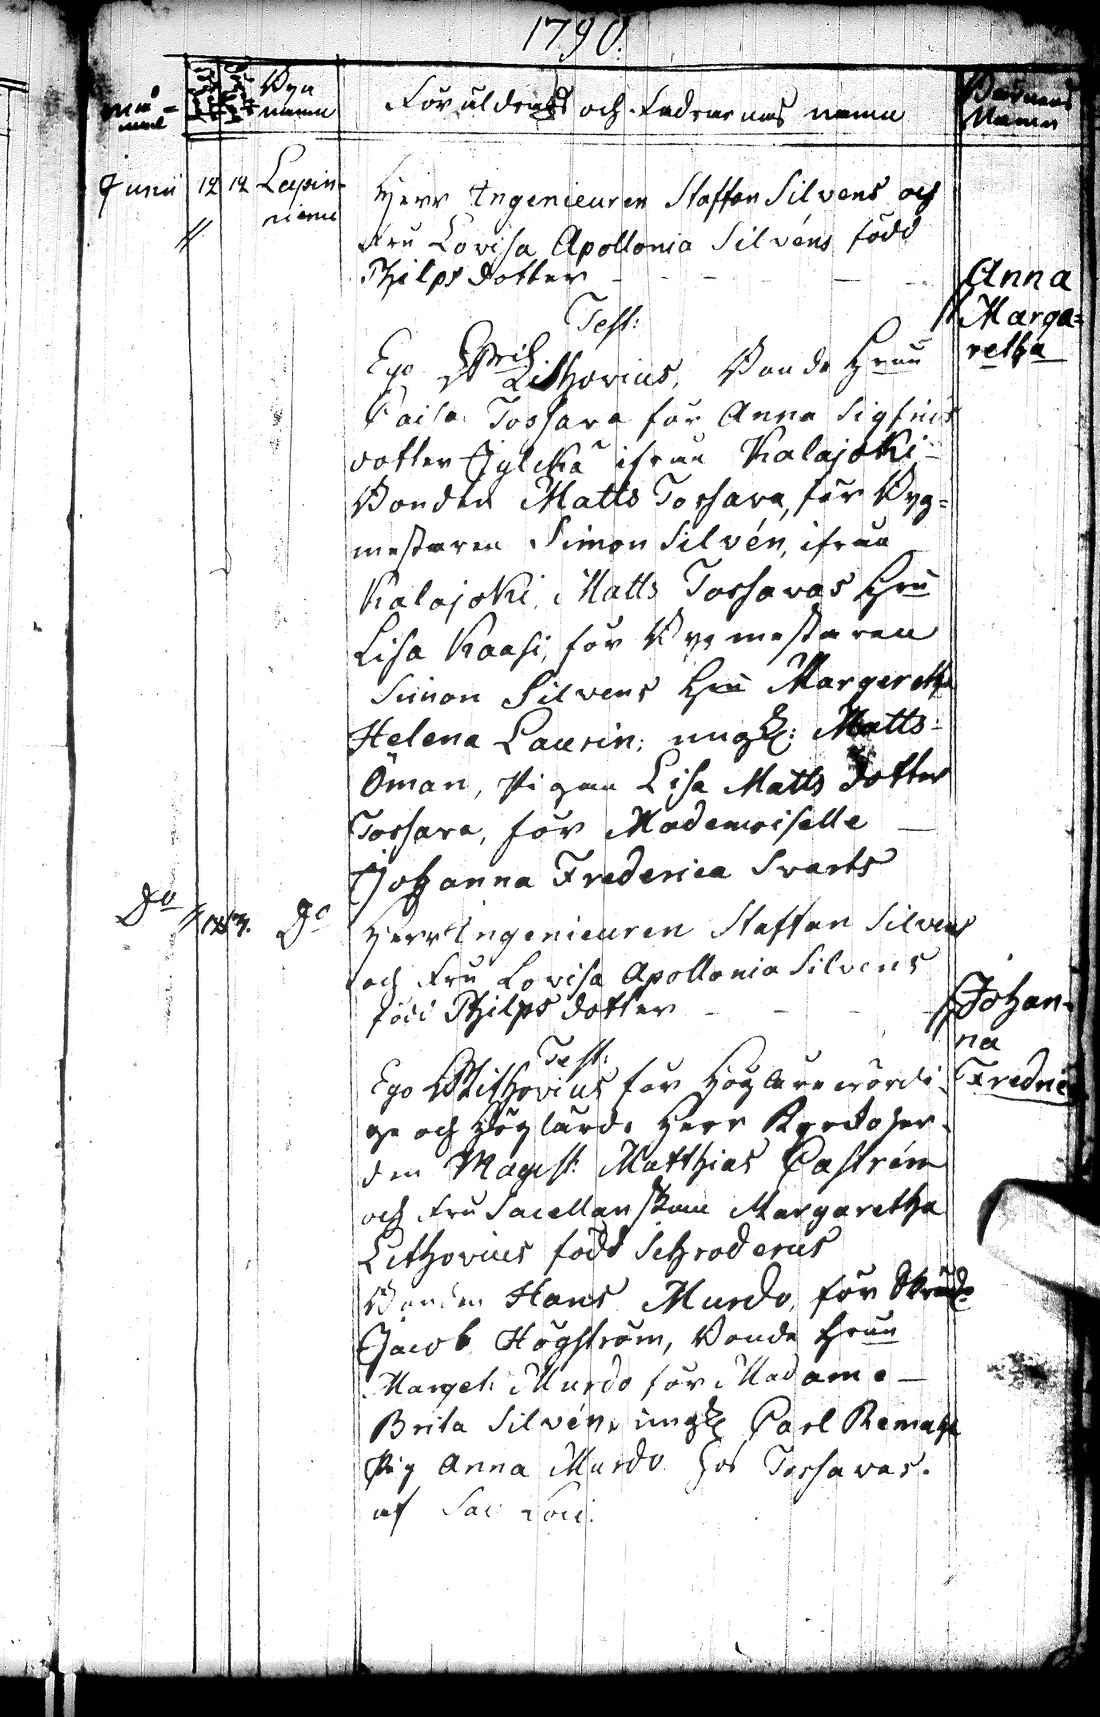 1790.
Må-
nad
Byn
namn
Föräldrars och Faderns namn
Barnens
Namn
Junii 12 12 Lapin-
niemi
Herr Ingenieuren Staffan Silvens och
Fru Lovisa Apollonia Silvéns född
Philps dotter
Anna
Marga=
retha
Test:
Ego Erich Lithovius, Bonde Hustru
Caisa Tossava för Anna Sigfrids
dotter Jylckä ifrån Kalajoki
Bonden Matts Tossava, för Byg=
mestaren Simon Silvén, ifrån
Kalajoki, Matts Tossavas Hru
Lisa Kaasi, för Bygmestaren
Simon Silvens Hru Margeretha
Helena Laurin; ungk: Matts
Öman, Pigan Lisa Matts dotter
Tossava, för Mademoiselle
Johanna Frederica Svartz
Do 12 13. Do
Herr Ingenieuren Staffan Silvens
och Fru Lovisa Apollonia Silvens
född Philps dotter
Johan-
na
Fredric
Test:
Ego Lithovius för Höglärevördi-
ge och Höglärde Herr Kyrckoher-
den Magist: Matthias Castrén
och Fru Sacellanskan Margaretha
Lithovius född Schroderus
Bonden Hans Murdo, för
Jacob Högström, Bonde Hrun
Marget: Murdo för Madame
Brita Silvén, ungk Carl
Pig Anna Murdo hos Tossavas.
af Sac: Loci.